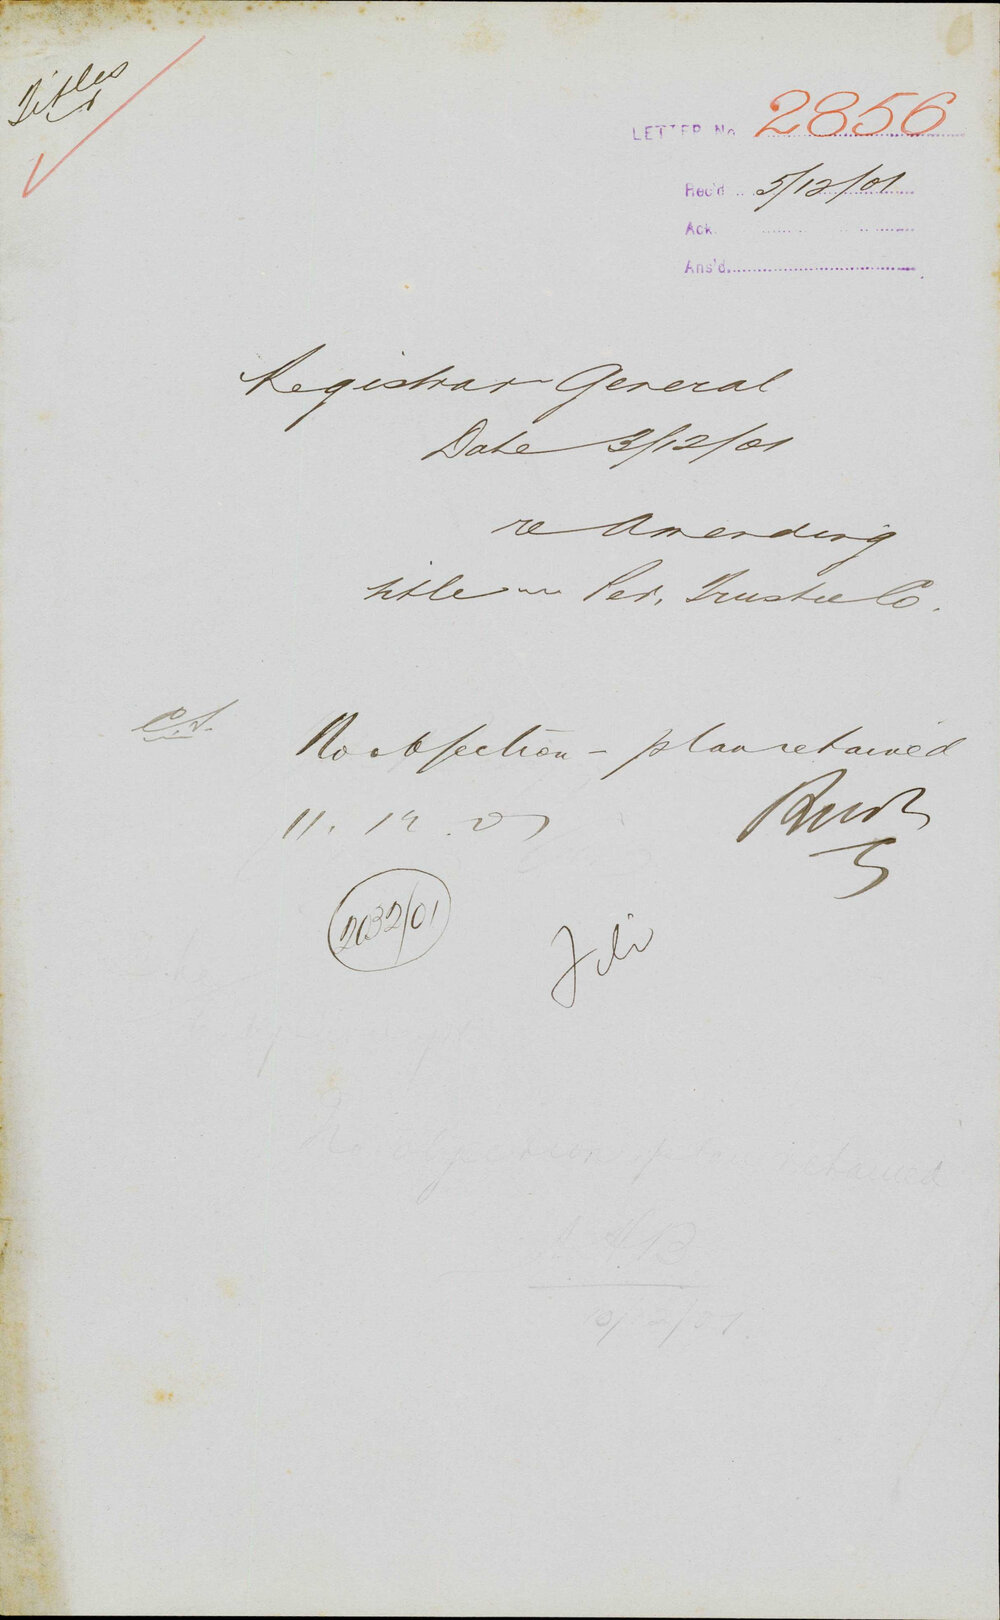 Titles
LETTER No 2856
Rec'd 5/12/01
Ack.
Ans'd.
Registrar General
Date 3/12/01
re Amending
title — Per. Trustee Co.
No objection - plan retained
11. 12. 01
2032/01
File
No objection plan retained
10/12/01